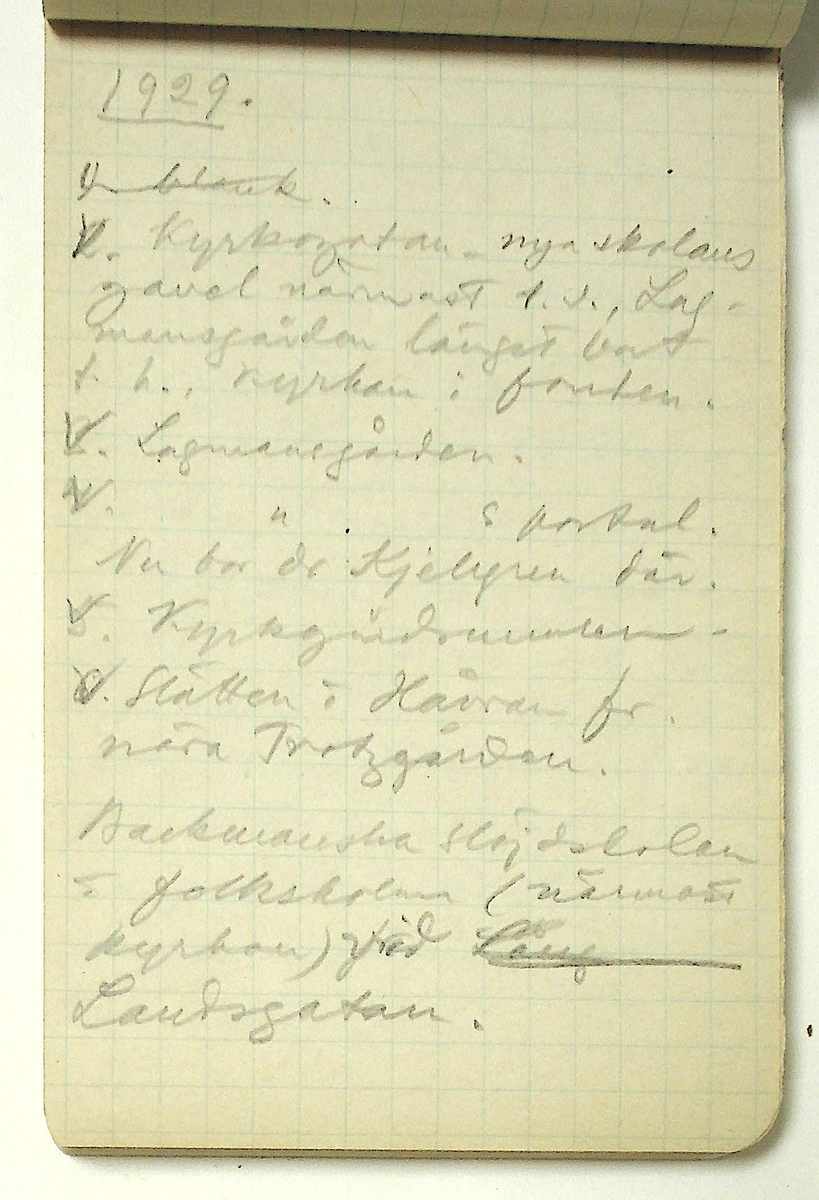 1929.
1. blank.
2. Kyrkogatan. nya skolans
gavel närmast t.v., Lag-
mansgården längst bort
t.h., kyrkan i fonten.
3. Lagmansgården.
4. " s portal.
Nu bor dr Kjellgren där.
5. Kyrkgårdsmuren.
6. Slätten i Håvran fr.
nära Trotzgården.
Backmanska slöjdskolan
i folkskolan (närmast
kyrkan) vid Lång
Landsgatan.